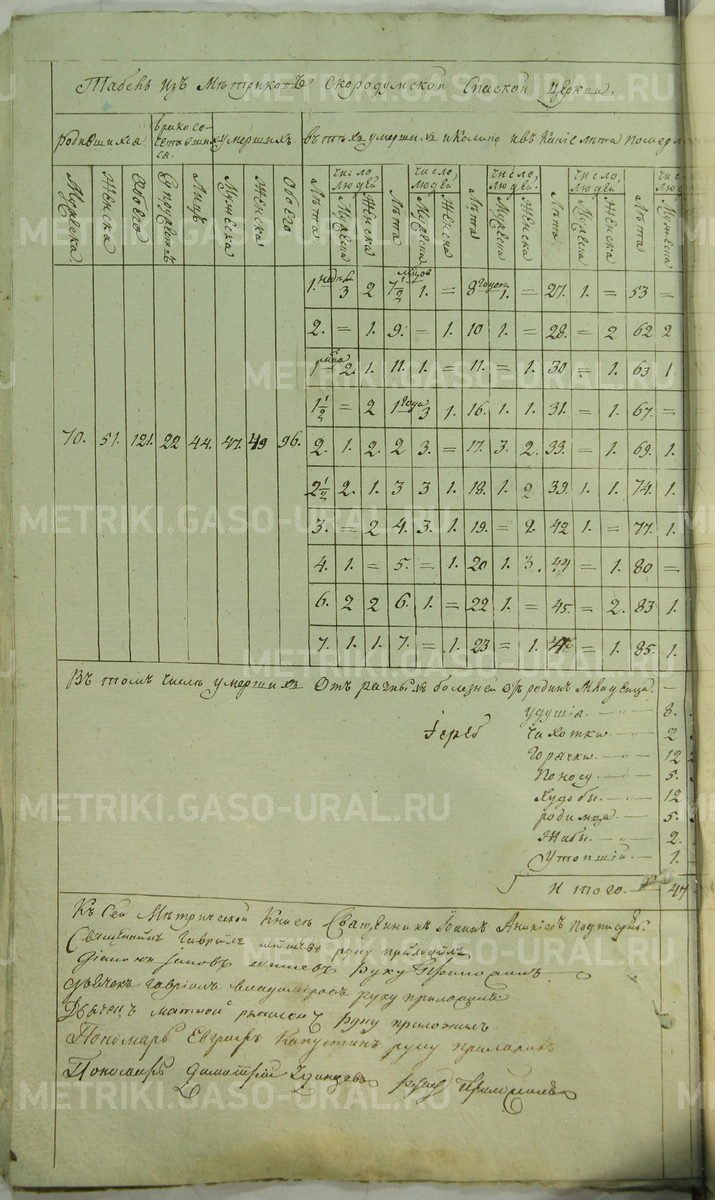 Табель изъ Метрикопъ Скородумской Спаской Церкви.
родившихся бракосочетавшихся умершихъ. въ томъ умершихъ и колико ихъ какие лета помер
число людей число, людей число, людей. число, людей число л
Мужеска. Женска Обоего Супружествъ Лицъ Мужеска Женска Обоего Лета Мужеска Женска Лета Мужеска Женска Лета Мужеска Женска Лета Мужеска Женска Лета Мужеска
1. недели 3 2 7 1/2 мцов 1. = 8 годом 1. = 27. 1. = 53 =
2. = 1. 9. = 1. 10 1. = 28. = 2 62 2
1 мца 2. 1. 11. 1. = 11. = 1. 30 = 1. 63 1
1 1/2 = 2 1 года 3 1. 16. 1. 1. 31. = 1. 67. =
70. 51. 121. 22 44. 47. 49 96. 2. 1. 2 2 3. = 17. 3. 2. 33. = 1. 69. 1.
2 1/2 2. 1. 3 3 1. 18. 1. 2 39. 1. 1. 74. 1.
3. = 2 4. 3. 1. 19. = 2. 42 1. = 77. 1.
4. 1. = 5. = 1. 20 1. 3. 44 = 1. 80 =
6. 2 2 6. 1. = 22 1. = 45. = 2. 83 1.
7. 1. 1. 7. = 1. 23 = 1. 46 = 1. 85. 1.
Въ томъ числе умершихъ Отъ разныхъ болезней Младенца. —
удушiа. — 8.
Чахотки. — 2
Горячки. — 12
Поносу. — 5.
Худобы. — 12
родимца. — 5.
Жабы. — 2.
Утопшiй. — 1.
Итого. — 47
Къ Сей Метрической Книге Священникъ Iоаннъ подписуе
Священникъ Гаврiилъ руку приложилъ
Дiаконъ руку приложилъ
дьячекъ гаврiилъ владимiровъ руку приложилъ
Дьячекъ матвей руку приложилъ.
Пономарь Евграфъ Капустинъ руку приложилъ
Пономарь димитрiй руку приложилъ
METRIKI.GASO-URAL.RU